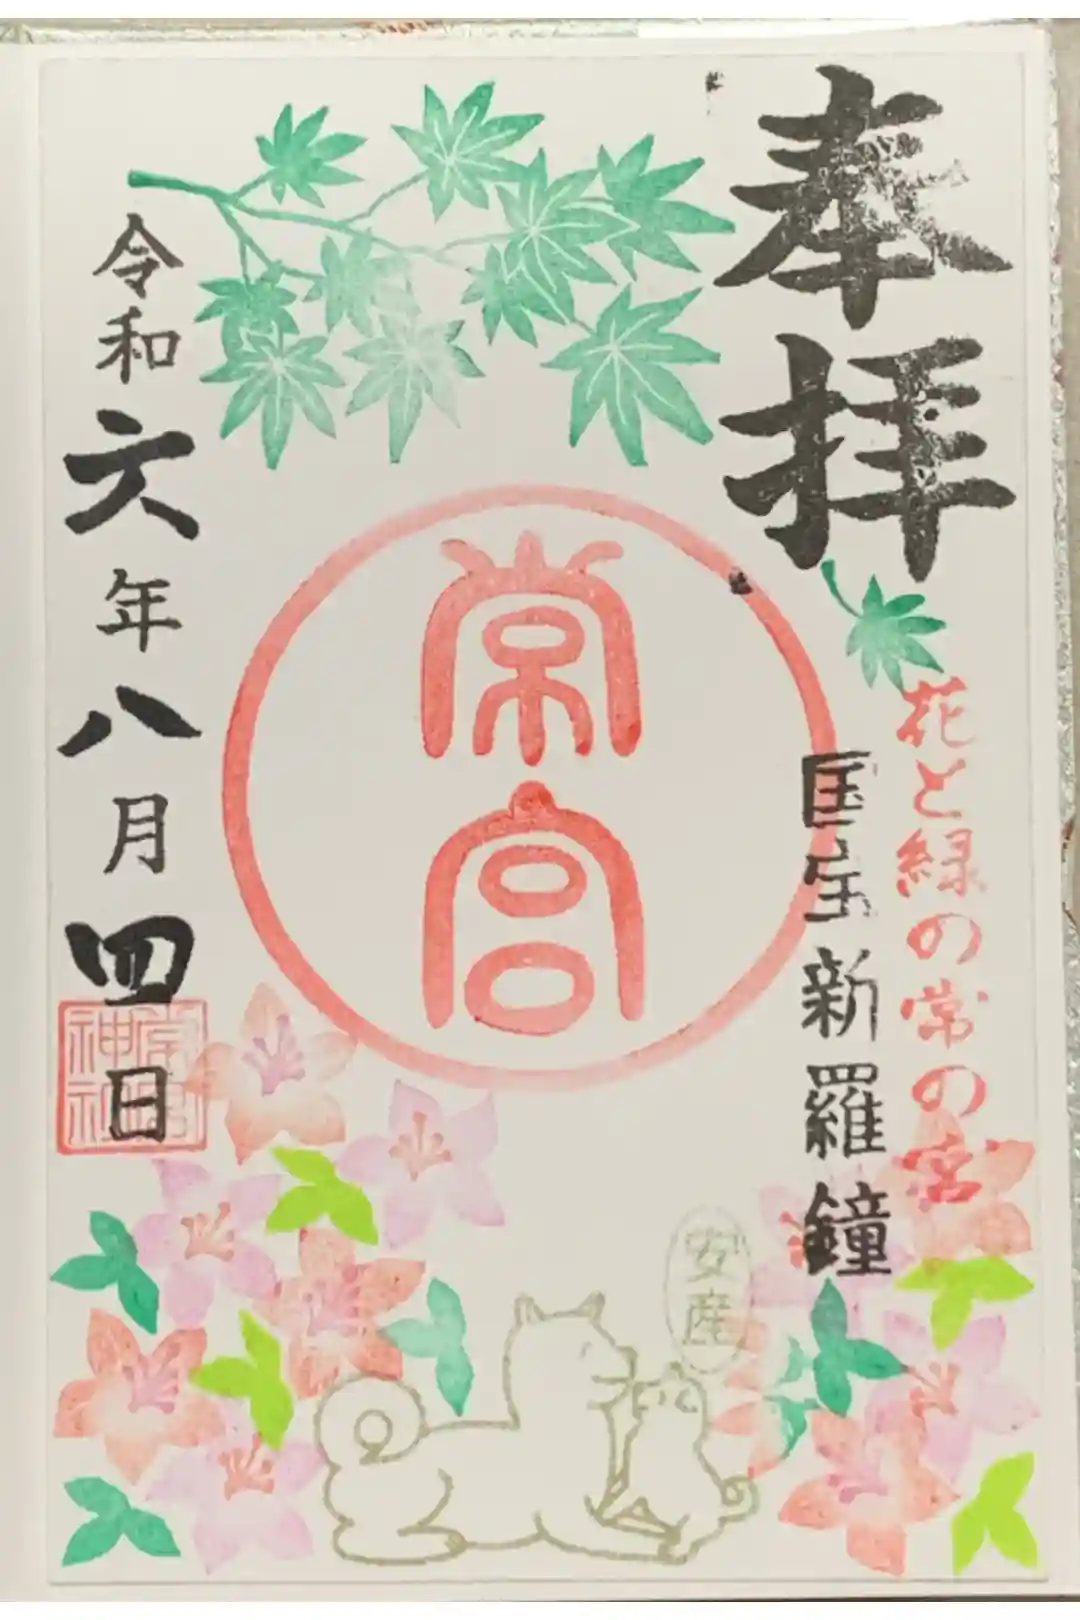 奉拝
花と緑の常の宮
国宝新羅鐘
常宮
安産
令和六年八月四日
常宮神社